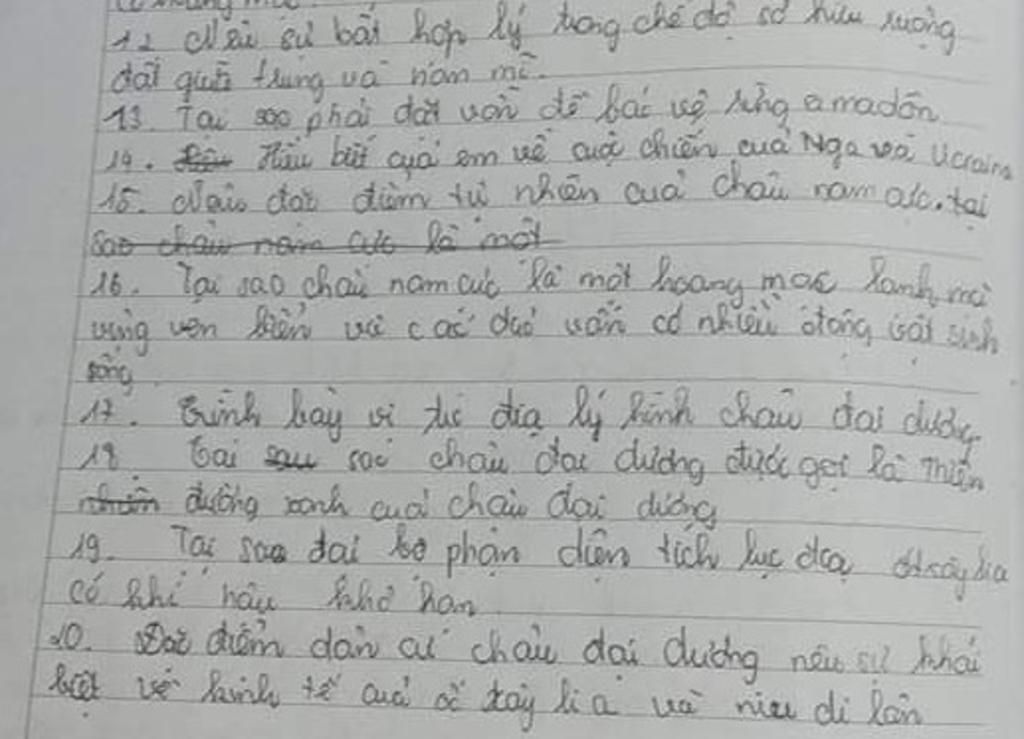 12 Nêu sự bất hợp lý trong chế độ sở hữu ruộng
đất giữa trung và nam mĩ.
13. Tại sao phải đặt vấn đề bác vệ rừng amadôn
14. Hiểu biết của em về cuộc chiến của Nga và Ucraina
15. Nêu đặc điểm tự nhiên cuả châu nam cực. tại
sao châu nam cực là một
16. Tại sao châu nam cực là một hoang mạc lạnh mà
vùng ven biển và các đảo vẫn có nhiều động vật sinh
sống
17. Trình bày vị trí địa lý hình châu đại dương
18 Tại sao châu đại dương được gọi là thiên
đường xanh cuả châu đại dương
19. Tại sao đại bộ phận diện tích lục địa ôtxaylia
có khí hậu khô hạn
20. Đặc điểm dân cư châu đại dương nêu sự khái
biệt về kinh tế cuả ốt xtây li a và niu di lân